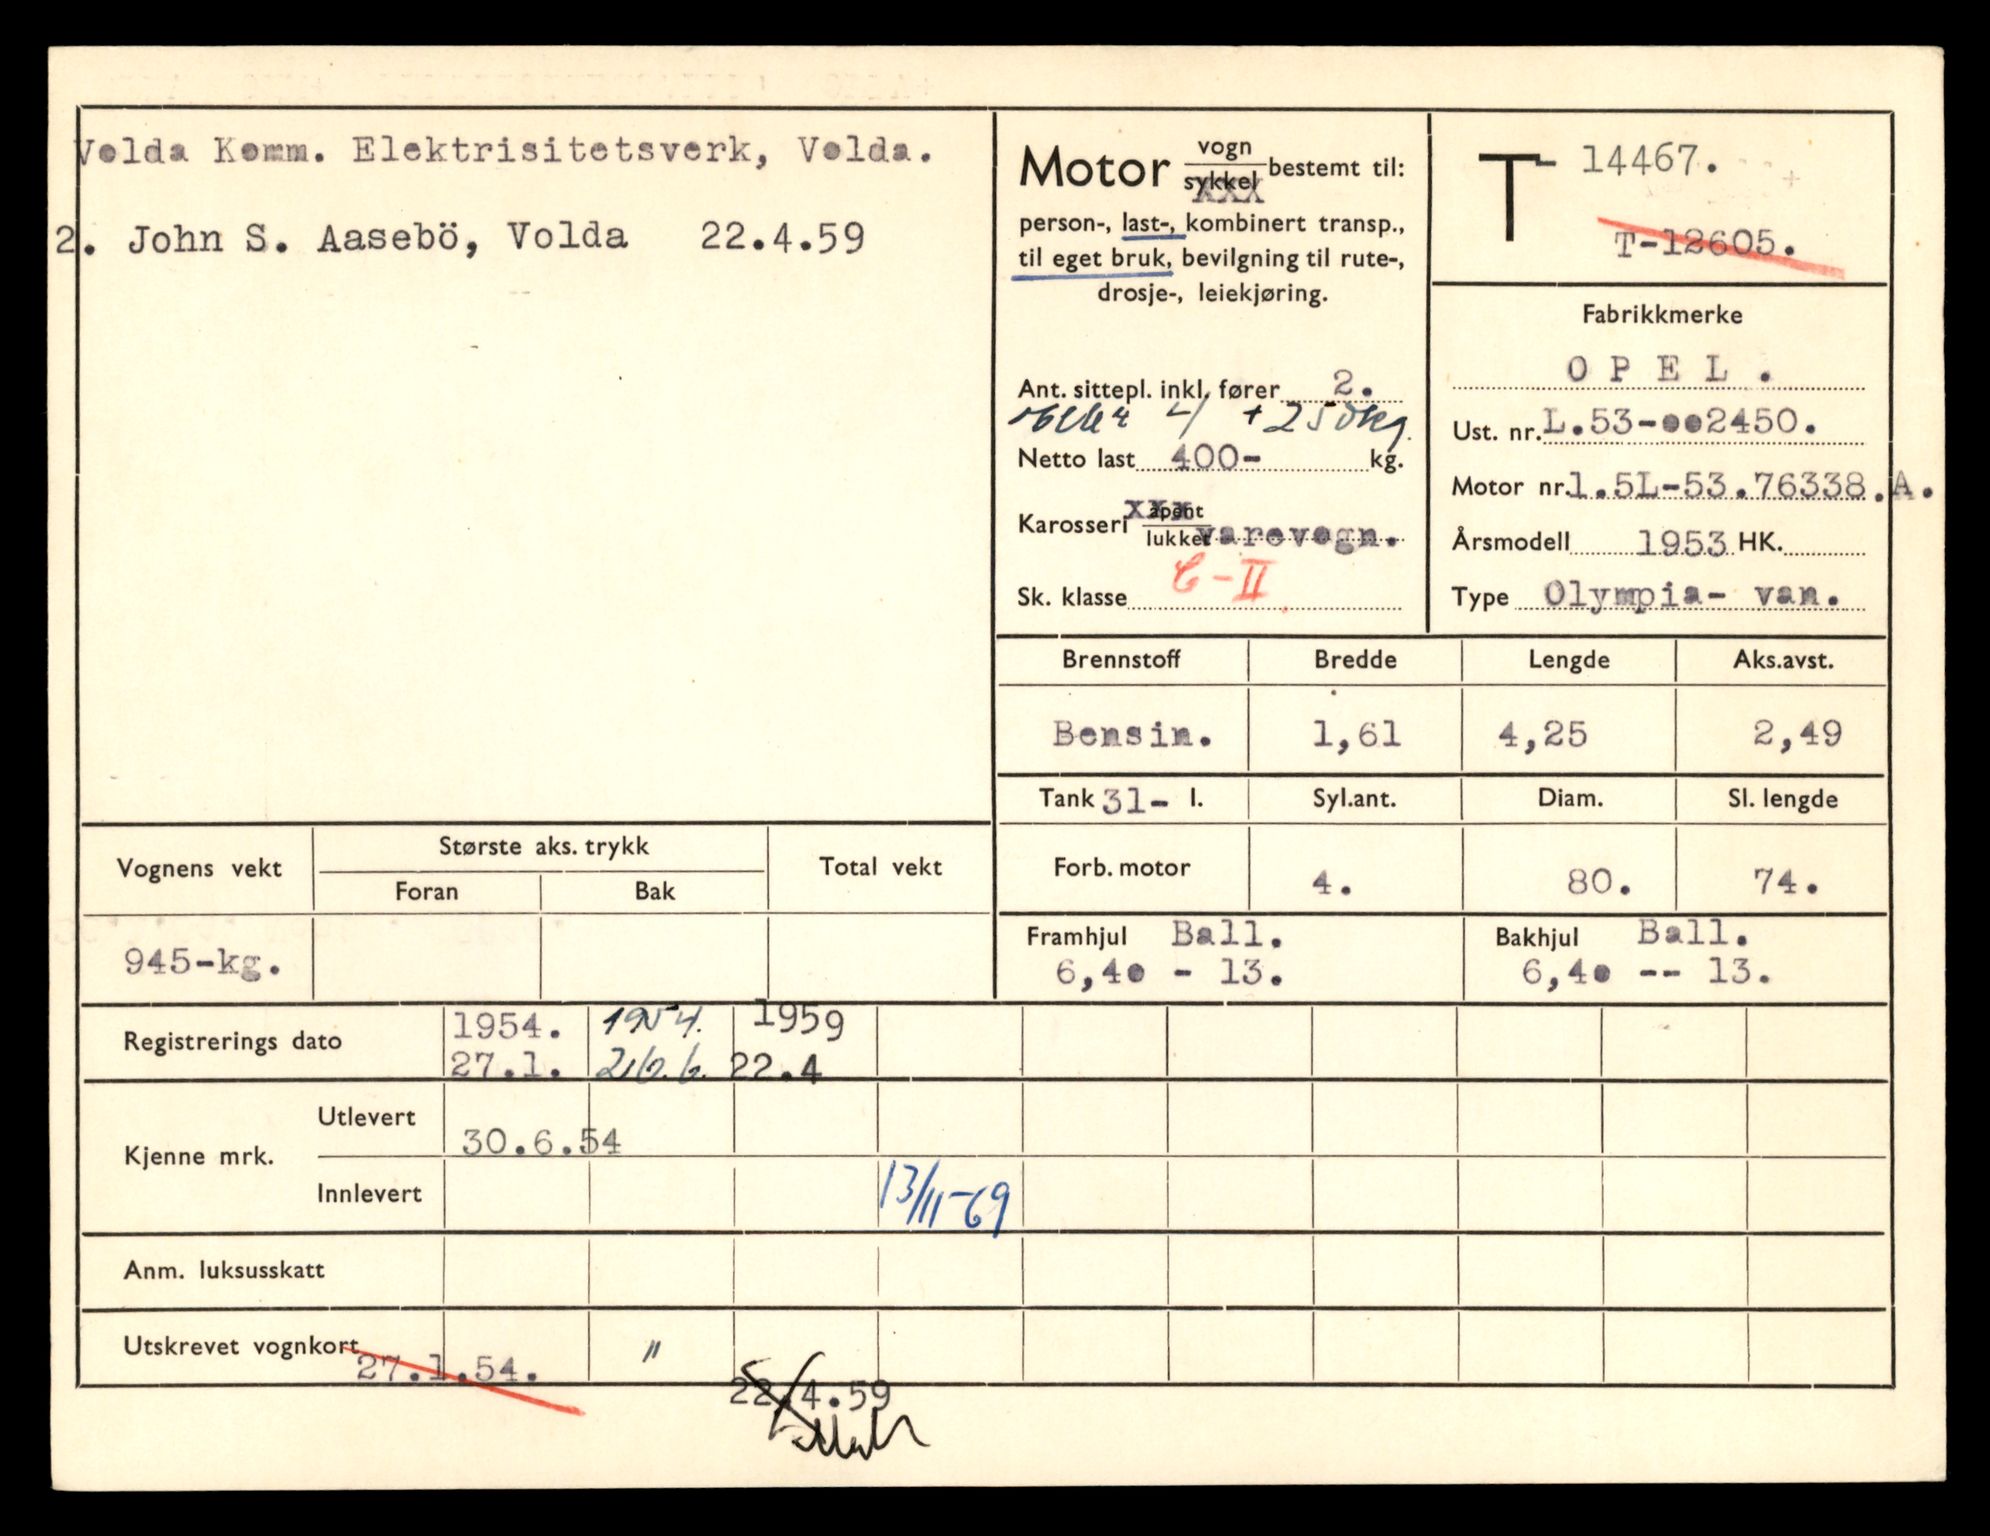 Volda Komm. Elektrisitetsverk, Volda.
2. John S. Aasebö, Volda 22.4.59
Motor vogn
sykkel bestemt til:
person-, last-, kombinert transp.,
til eget bruk, bevilgning til rute-,
drosje-, leiekjøring.
Ant. sittepl. inkl. fører 2.
eller 4 + 250kg.
Netto last 400- kg.
Karosseri åpent
lukket varevogn.
Sk. klasse C-II
T- 14467.
T-12605.
Fabrikkmerke
OPEL.
Ust. nr. L.53-002450.
Motor nr. 1.5L-53.76338.A.
Årsmodell 1953 HK.
Type Olympia- van.
Brennstoff Bredde Lengde Aks.avst.
Bensin. 1,61 4,25 2,49
Tank 31- l. Syl.ant. Diam. Sl. lengde
Forb. motor 4. 80. 74.
Framhjul Ball. Bakhjul Ball.
6,40 - 13. 6,40 -- 13.
Vognens vekt Største aks. trykk Total vekt
Foran Bak
945-kg.
Registrerings dato 1954. 1954. 1959
27.1. 26.6. 22.4
Kjenne mrk. Utlevert 30.6.54
Innlevert 13/11-69
Anm. luksusskatt
Utskrevet vognkort 27.1.54. " 22.4.59